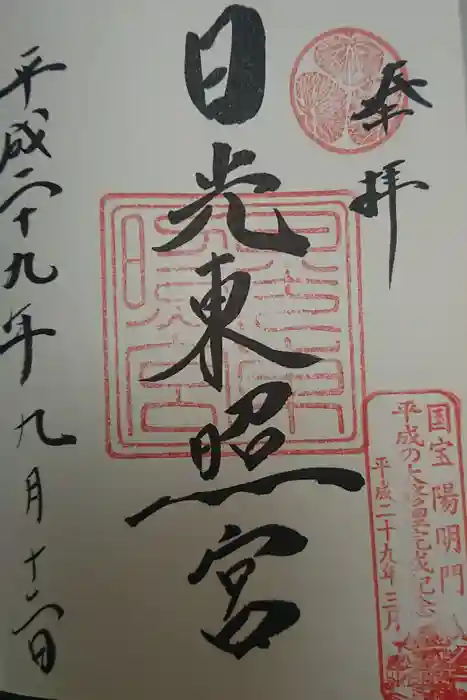 奉拝
日光東照宮
平成二十九年九月十一日
国宝 陽明門
平成の大修理完成記念
平成二十九年三月